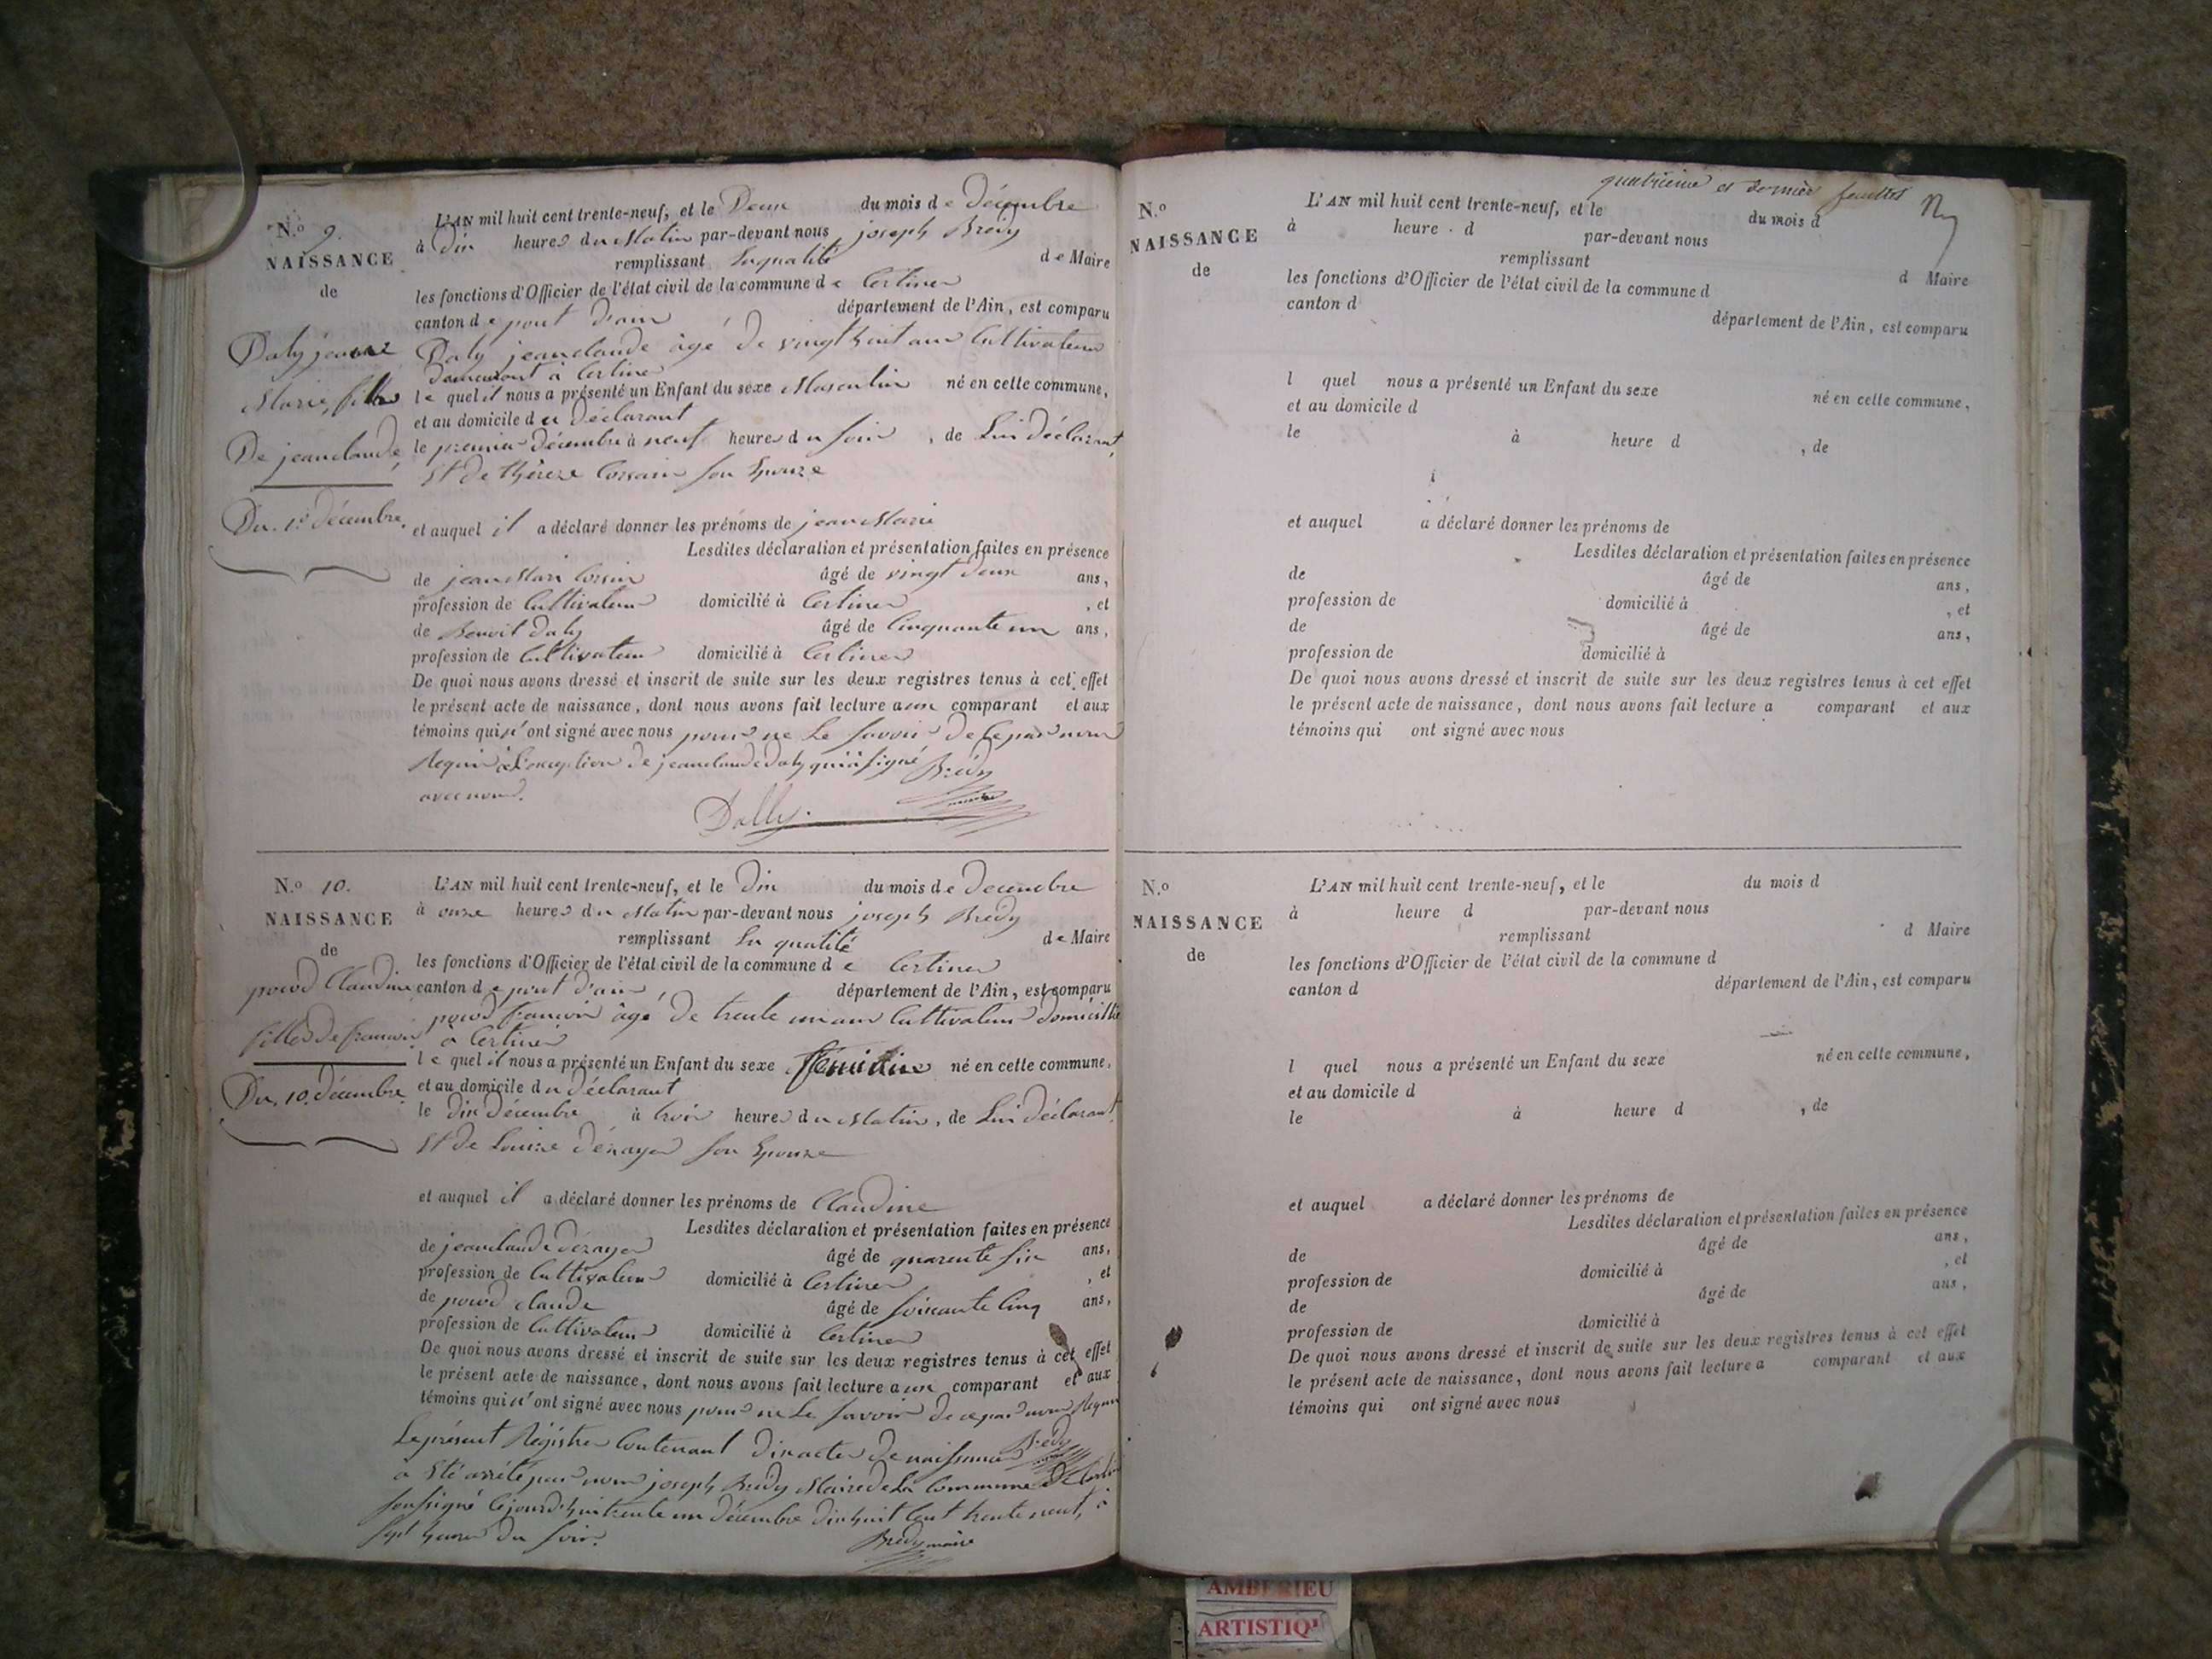 N.º 9.
NAISSANCE
de
Daly jean
Marie, fils
De jeanclaude,
Du 1er décembre.
L'AN mil huit cent trente-neuf, et le Deux du mois de Décembre
à dix heures du Matin par-devant nous joseph Brédy
remplissant La qualité de Maire
les fonctions d'Officier de l'état civil de la commune de Certines
canton de pont d'ain département de l'Ain, est comparu
Daly jeanclaude âgé de vingt huit ans Cultivateur
demeurant à Certines
le quel il nous a présenté un Enfant du sexe Masculin né en cette commune,
et au domicile du Déclarant
le premier Décembre à neuf heures du soir, de Lui déclarant,
Et de thérèze Corsain son Epouze
et auquel il a déclaré donner les prénoms de jean Marie
Lesdites déclaration et présentation faites en présence
de jean Mari Corsin âgé de vingt deux ans,
profession de Cultivateur domicilié à Certines, et
de Benoit daly âgé de Cinquante un ans,
profession de Cultivateur domicilié à Certines
De quoi nous avons dressé et inscrit de suite sur les deux registres tenus à cet effet
le présent acte de naissance, dont nous avons fait lecture aux comparant et aux
témoins qui n'ont signé avec nous pour ne Le savoir de ce par nous
Requis à L'exception de jeanclaude daly qui a signé Brédy
avec nous. maire
Dally
N.º 10.
NAISSANCE
de
pouod Claudine
fille de francois
Du 10 décembre
L'AN mil huit cent trente-neuf, et le Dix du mois de Decembre
à onze heures du Matin par-devant nous joseph Brédy
remplissant La qualité de Maire
les fonctions d'Officier de l'état civil de la commune de Certines
canton de pont d'ain, département de l'Ain, est comparu
pouod francois âgé de trente un ans Cultivateur domicillié
à Certines
le quel il nous a présenté un Enfant du sexe féminin né en cette commune,
et au domicile du Déclarant
le dix Décembre à trois heures du Matin, de Lui déclarant,
Et de Louize dérayer son Epouze
et auquel il a déclaré donner les prénoms de Claudine
Lesdites déclaration et présentation faites en présence
de jeanclaude dérayer âgé de quarente six ans,
profession de Cultivateur domicilié à Certines, et
de pouod claude âgé de soixante Cinq ans,
profession de Cultivateur domicilié à Certines
De quoi nous avons dressé et inscrit de suite sur les deux registres tenus à cet effet
le présent acte de naissance, dont nous avons fait lecture aux comparant et aux
témoins qui n'ont signé avec nous pour ne Le savoir de ce par nous Requis
Brédy
Le présent Régistre Contenant dix actes de naissance
a Eté arrêté par nous joseph Brédy Maire de La Commune de
soussigné Cejourd'hui trente un décembre dix huit Cent trente neuf, à
sept heures du soir.
Brédy maire
quatrieme et dernier feuillet
N.º
NAISSANCE
de
L'AN mil huit cent trente-neuf, et le du mois d
à heure d par-devant nous
remplissant d Maire
les fonctions d'Officier de l'état civil de la commune d
canton d département de l'Ain, est comparu
l quel nous a présenté un Enfant du sexe né en cette commune,
et au domicile d
le à heure d , de
et auquel a déclaré donner les prénoms de
Lesdites déclaration et présentation faites en présence
de âgé de ans,
profession de domicilié à , et
de âgé de ans,
profession de domicilié à
De quoi nous avons dressé et inscrit de suite sur les deux registres tenus à cet effet
le présent acte de naissance, dont nous avons fait lecture a comparant et aux
témoins qui ont signé avec nous
N.º
NAISSANCE
de
L'AN mil huit cent trente-neuf, et le du mois d
à heure d par-devant nous
remplissant d Maire
les fonctions d'Officier de l'état civil de la commune d
canton d département de l'Ain, est comparu
l quel nous a présenté un Enfant du sexe né en cette commune,
et au domicile d
le à heure d , de
et auquel a déclaré donner les prénoms de
Lesdites déclaration et présentation faites en présence
de âgé de ans,
profession de domicilié à , et
de âgé de ans,
profession de domicilié à
De quoi nous avons dressé et inscrit de suite sur les deux registres tenus à cet effet
le présent acte de naissance, dont nous avons fait lecture a comparant et aux
témoins qui ont signé avec nous
AMBERIEU
ARTISTIQ